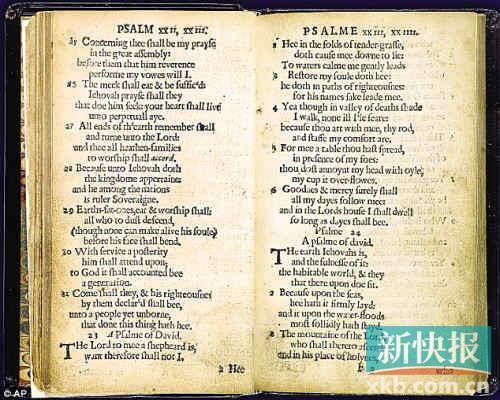 PSALM xxii, xxiii.
25 Concerning thee shall be my prayse
in the great assembly:
before them that him reverence
performe my vowes will I.
26 The meek shall eat & be suffic'd
Iehovah prayse shall they
that doe him seek: your heart shall live
unto perpetuall aye.
27 All ends of th'earth remember shall
and turne unto the Lord:
and thee all heathen-families
to worship shall accord.
28 Because unto Iehovah doth
the kingdome appertaine:
and he among the nations
is ruler Soveraigne.
29 Earths-fat-ones, eat & worship shall:
all who to dust descend,
(though none can make alive his soule)
before his face shall bend.
30 With service a posterity
him shall attend upon;
to God it shall accounted bee
a generation.
31 Come shall they, & his righteousnes
by them declar'd shall bee,
unto a people yet unborne,
that done this thing hath hee.
23 A Psalme of David.
The Lord to mee a shepheard is,
want therefore shall not I.
2 Hee
PSALME xxiii, xxiiii.
2 Hee in the folds of tender-grasse,
doth cause mee downe to lie:
To waters calme me gently leads
3 Restore my soule doth hee:
he doth in paths of righteousnes:
for his names sake leade mee.
4 Yea though in valley of deaths shade
I walk, none ill I'le feare:
because thou art with mee, thy rod,
and staffe my comfort are.
5 For mee a table thou hast spread,
in presence of my foes:
thou dost annoynt my head with oyle,
my cup it over-flowes.
6 Goodnes & mercy surely shall
all my dayes follow mee:
and in the Lords house I shall dwell
so long as dayes shall bee.
Psalme 24
A psalme of david.
The earth Iehovahs is,
and the fulnesse of it:
the habitable world, & they
that there upon doe sit.
2 Because upon the seas,
hee hath it firmly layd:
and it upon the water-floods
most sollidly hath stayd.
3 The mountaine of the Lord,
who shall thereto ascend
and in his place of holynes,
新快报
xkb.com.cn
© AP